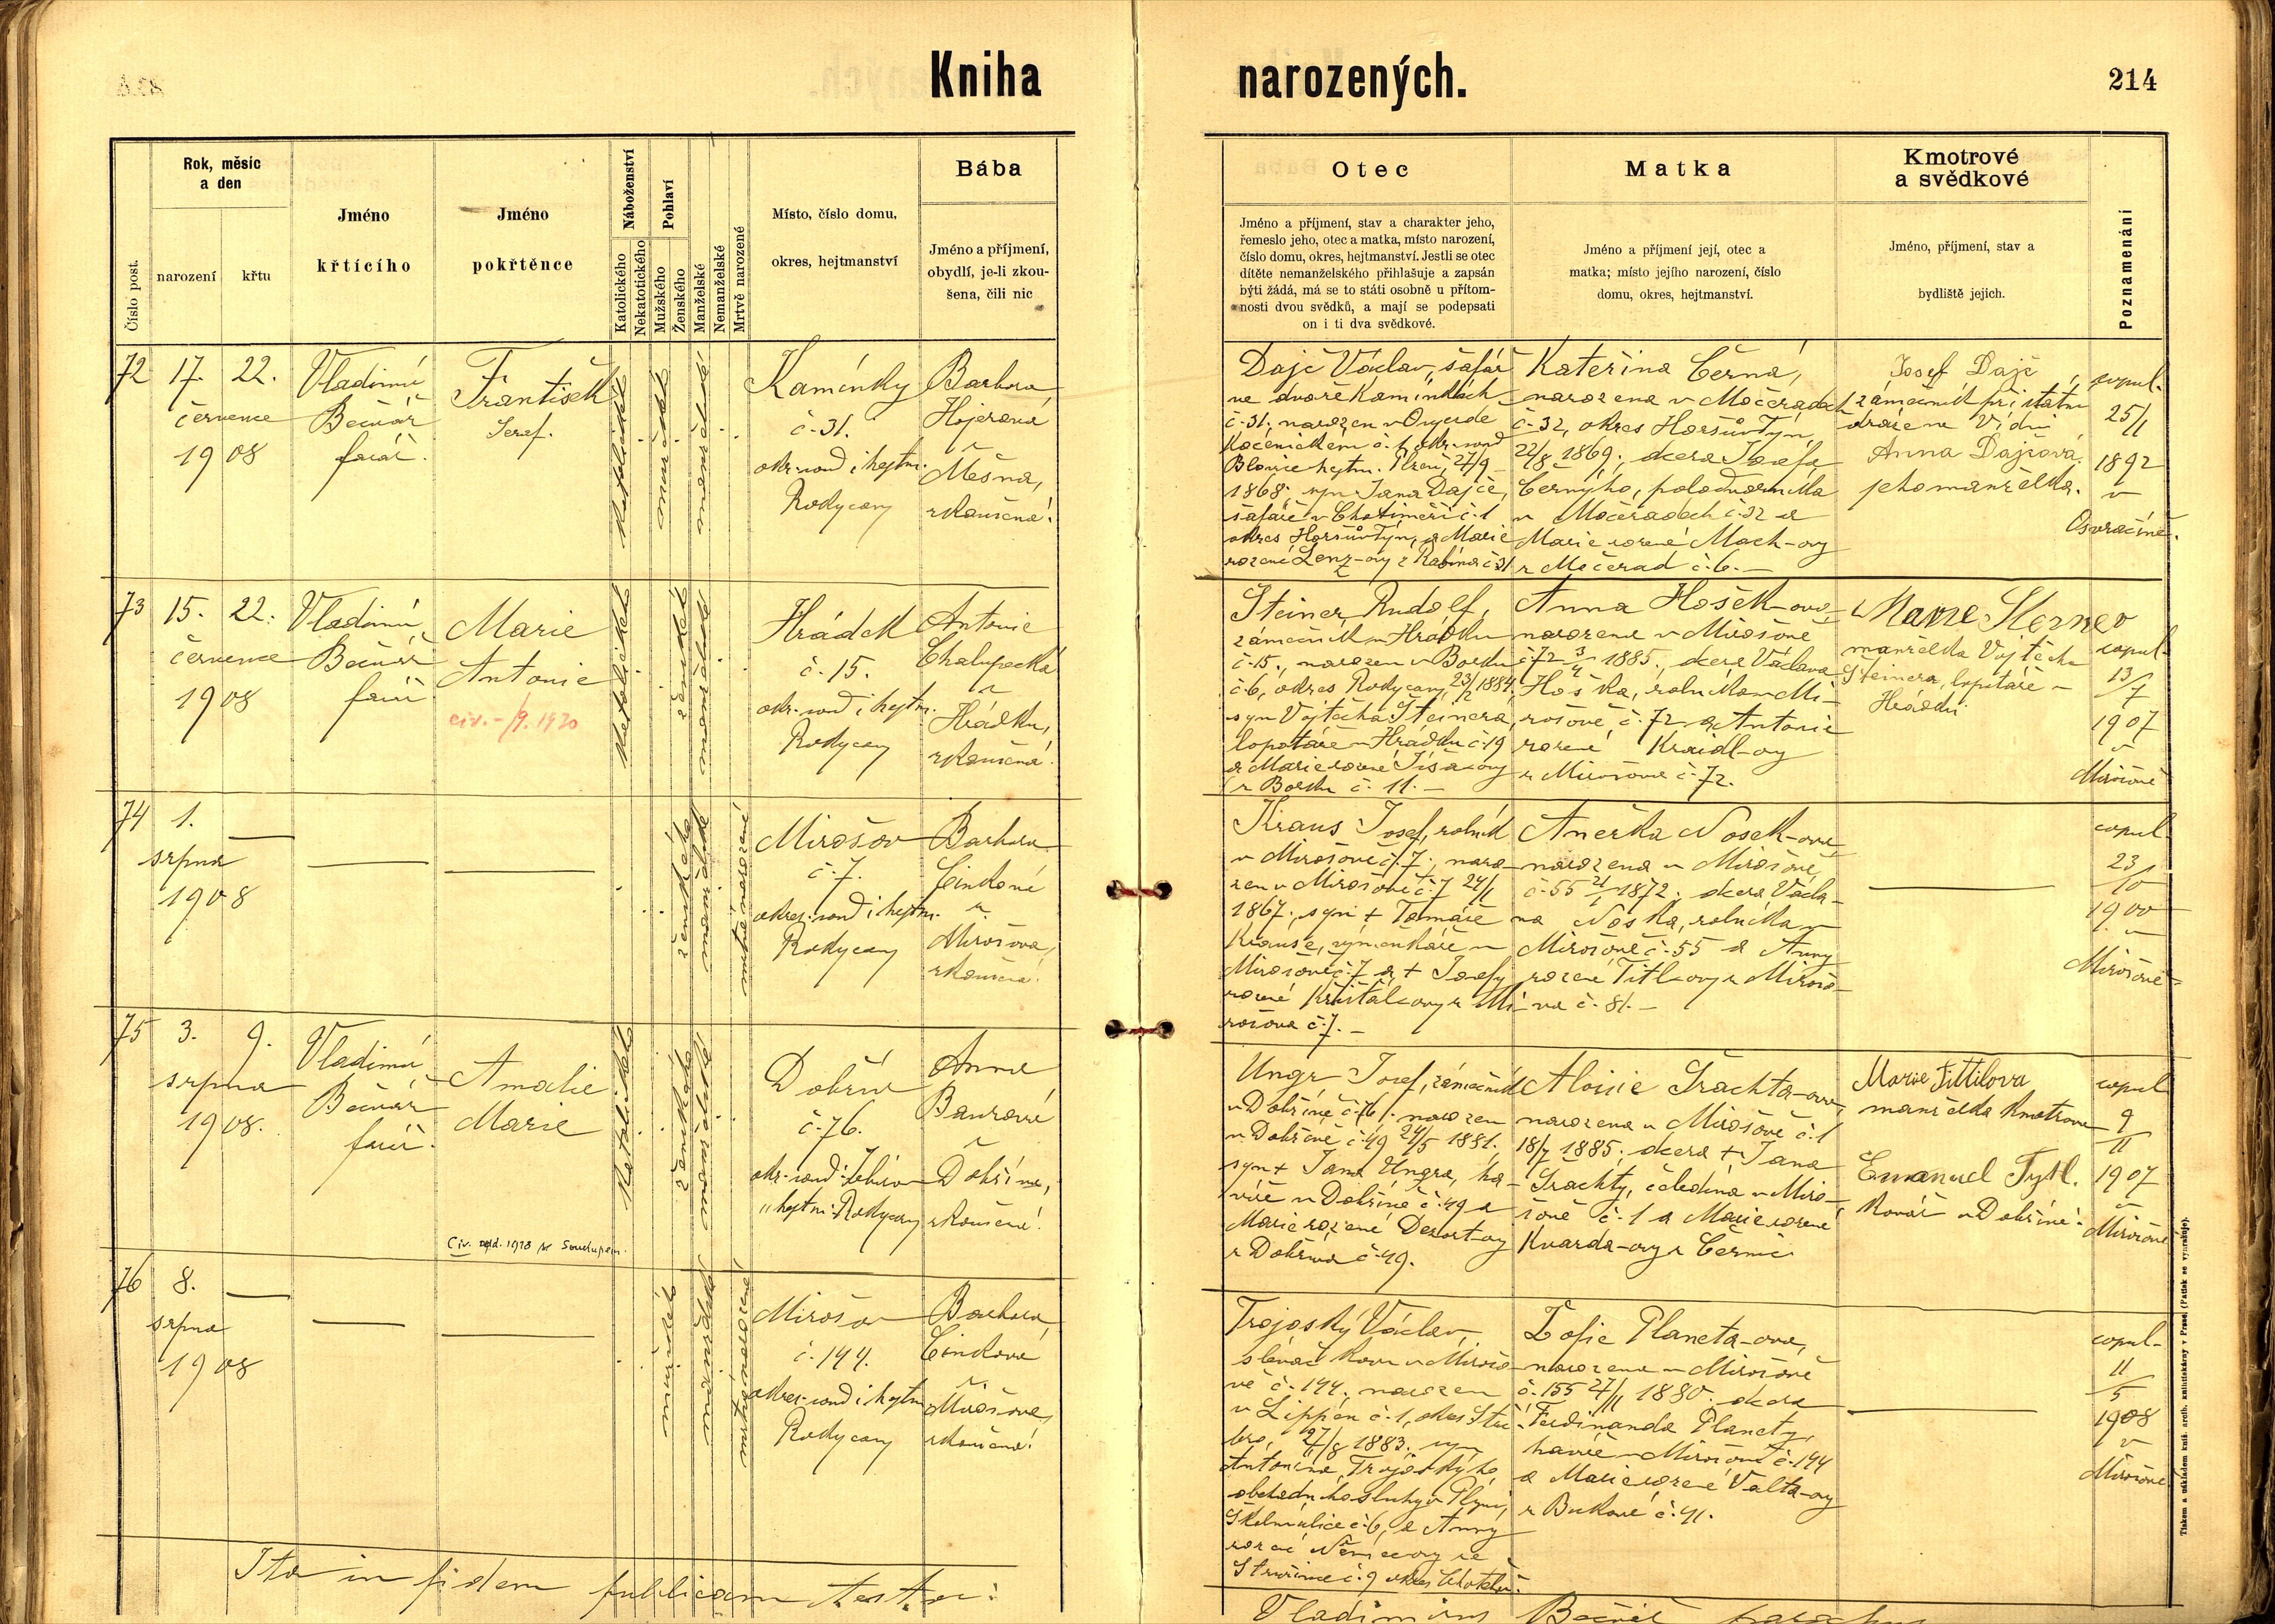 Kniha narozených.
214
Číslo post.
Rok, měsíc
a den
narození
křtu
Jméno
křtícího
Jméno
pokřtěnce
Náboženství
Katolického
Nekatotického
Pohlaví
Mužského
Ženského
Manželské
Nemanželské
Mrtvě narozené
Místo, číslo domu,
okres, hejtmanství
Bába
Jméno a příjmení,
obydlí, je-li zkou-
šena, čili nic
Otec
Jméno a příjmení, stav a charakter jeho,
řemeslo jeho, otec a matka, místo narození,
číslo domu, okres, hejtmanství. Jestli se otec
dítěte nemanželského přihlašuje a zapsán
býti žádá, má se to státi osobně u přítom-
nosti dvou svědků, a mají se podepsati
on i ti dva svědkové.
Matka
Jméno a příjmení její, otec a
matka; místo jejího narození, číslo
domu, okres, hejtmanství.
Kmotrové
a svědkové
Jméno, příjmení, stav a
bydliště jejich.
Poznamenání
72
17. 22.
července
1908
Vladimír
Bečvář
farář.
František
Josef.
katolického
mužského
manželské
Kamínky
č. 31.
okr. soud i hejtm.
Rokycany
Barbora
z
Měšna,
zkoušená.
Dajč Václav, šafář
ve dvoře Kamínkách
č. 31., narozen v
1868; syn Jana Dajče,
šafáře v Chotiměři č. 1
okres Horšův Týn, a Marie
rozené Lenz-ovy z
Kateřina Černá,
narozena v Močerádech
č. 32, okres Horšův Týn,
22/8 1869; dcera Josefa
Černýho,
v Močeradech č. 32 a
Marie rozené Mach-ovy
z Močerad č. 6. —
Josef Dajč,
zámečník při státní
dráze ve Vídni
Anna Dajčová
jeho manželka.
copul.
25/1
1892
v
Osvračíně.
73
15. 22.
července
1908
Vladimír
Bečvář
farář
Marie
Antonie
civ. - /9. 1930
katolického
ženského
manželské
Hrádek
č. 15.
okr. soud i hejtm.
Rokycany
Antonie
Chalupecká
z
Hrádku,
zkoušená.
Steiner Rudolf,
zámečník v Hrádku
č. 15., narozen v Borku
č. 6, okres Rokycany, 23/2 1884,
syn Vojtěcha Steinera,
lopatáře v Hrádku č. 19
a Marie rozené
z Borku č. 11. —
Anna Hošek-ova,
narozena v Mirošově
č. 72 3/4 1885; dcera Václava
Hoška, rolníka v Mi-
rošově č. 72 a Antonie
rozené Kraidl-ovy
z Mirošova č. 72.
Marie Steiner
manželka Vojtěcha
Steinera, lopatáře v
Hrádku
copul.
13/7
1907
v
Mirošově
74
1.
srpna
1908
ženského
manželské
mrtvě narozené
Mirošov
č. 7.
okres. soud i hejtm.
Rokycany
Barbora
Cinková
z
Mirošova,
zkoušená.
Kraus Josef, rolník
v Mirošově č. 7., naro-
zen v Mirošově č. 7 24/1
1867., syn + Tomáše
Krause, výměnkáře v
Mirošově č. 7 a + Josefy
rozené Křišťálovy z Mi-
rošova č. 7. —
Anežka Nosek-ova,
narozena v Mirošově,
č. 55 21/1 1872; dcera Václa-
va Noska, rolníka v
Mirošově č. 55 a Anny
rozené Titlovy z Mirošo-
va č. 81. —
copul.
23/10
1900
v
Mirošově
75
3. 9.
srpna
1908.
Vladimír
Bečvář
farář.
Amalie
Marie
katolického
ženského
manželské
Dobřív
č. 76.
okr. soud: Zbirov
" hejtm: Rokycany
Anna
Baurová
z
Dobříva,
zkoušená.
Ungr Josef, zámečník
v Dobřívě č. 76., narozen
v Dobřívě č. 49 24/5 1881.
syn + Jana Ungra, ko-
váře v Dobřívě č. 49 a
Marie rozené Dezort-ovy
z Dobříva č. 49.
Aloisie Trachta-ova,
narozena v Mirošově č. 1
18/7 1885; dcera + Jana
Trachty, čeledína v Miro-
šově č. 1 a Marie rozené
Kvarda-ovy z
Marie Tittilova
manželka kmotrova
Emanuel Tytl.
Kovář v Dobřívě.
copul.
9/11
1907
v
Mirošově
76
8.
srpna
1908
mužského
manželské
mrtvě narozené
Mirošov
č. 144.
okres. soud i hejtm.
Rokycany
Barbora
Cinkova
z
Mirošova,
zkoušená.
Trojoský Václav,
slévač kovu v Mirošo-
vě č. 144., narozen
v Lippén č. 1, okres Stří-
bro, 27/8 1883. syn
Antonína Trojoskýho
obchodního sluhy v Plzni,
a Anny
rozené Němcovy ze
Žofie Planeta-ova,
narozena v Mirošově
č. 155 27/11 1880; dcera
Ferdinanda Planety,
havíře v Mirošově č. 144
a Marie rozené Valta-ovy
z Bukové č. 41.
copul.
11/5
1908
v
Mirošově
Ita in fidem publicam testor:
Vladimirus Bečvář parochus
Tiskem a nákladem kníž. arcib. knihtiskárny v Praze. (Patisk se vyhražuje).